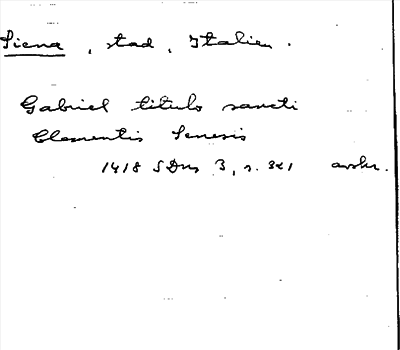 Siena, stad, Italien.
Gabriel titulo sancti
Clementis Senesis
1418 SDns 3, s. 321 avskr.